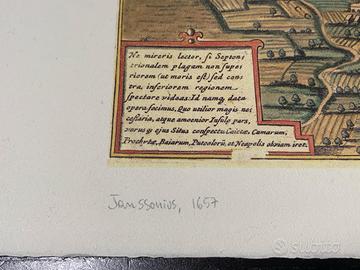 Ne mireris lector, si Septen
trionalem plagam non supe
riorem (ut moris est) sed con
tra, inferiorem regionem
spectare videas: Id namq, data
opera fecimus, Quo utilior magis ne
cessaria, atque amoenior Insule pars,
ejus Situs conspectu Caietæ, Cumarum,
Prochytæ, Baiarum, Puteolorū, et Neapolis obviam iret.
Janssonius, 1657
subito.it